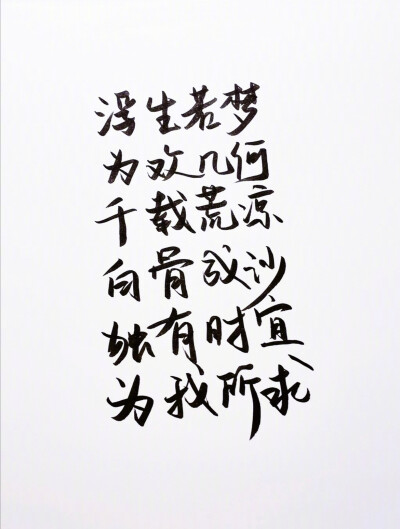 浮生若梦
为欢几何
千载荒凉
白骨成沙
独有时宜
为我所求